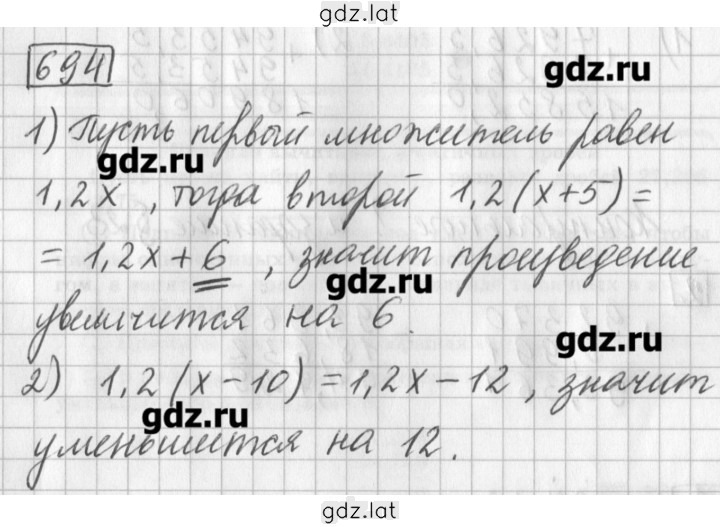 gdz.lat
694
gdz.ru
1) Пусть первый множитель равен
gdz.ru
1,2x, тогда второй 1,2(x+5)=
= 1,2x+6, значит произведение
gdz.ru
увеличится на 6.
gdz.ru
2) 1,2(x-10)=1,2x-12, значит
gdz.ru
уменьшится на 12.
gdz.lat